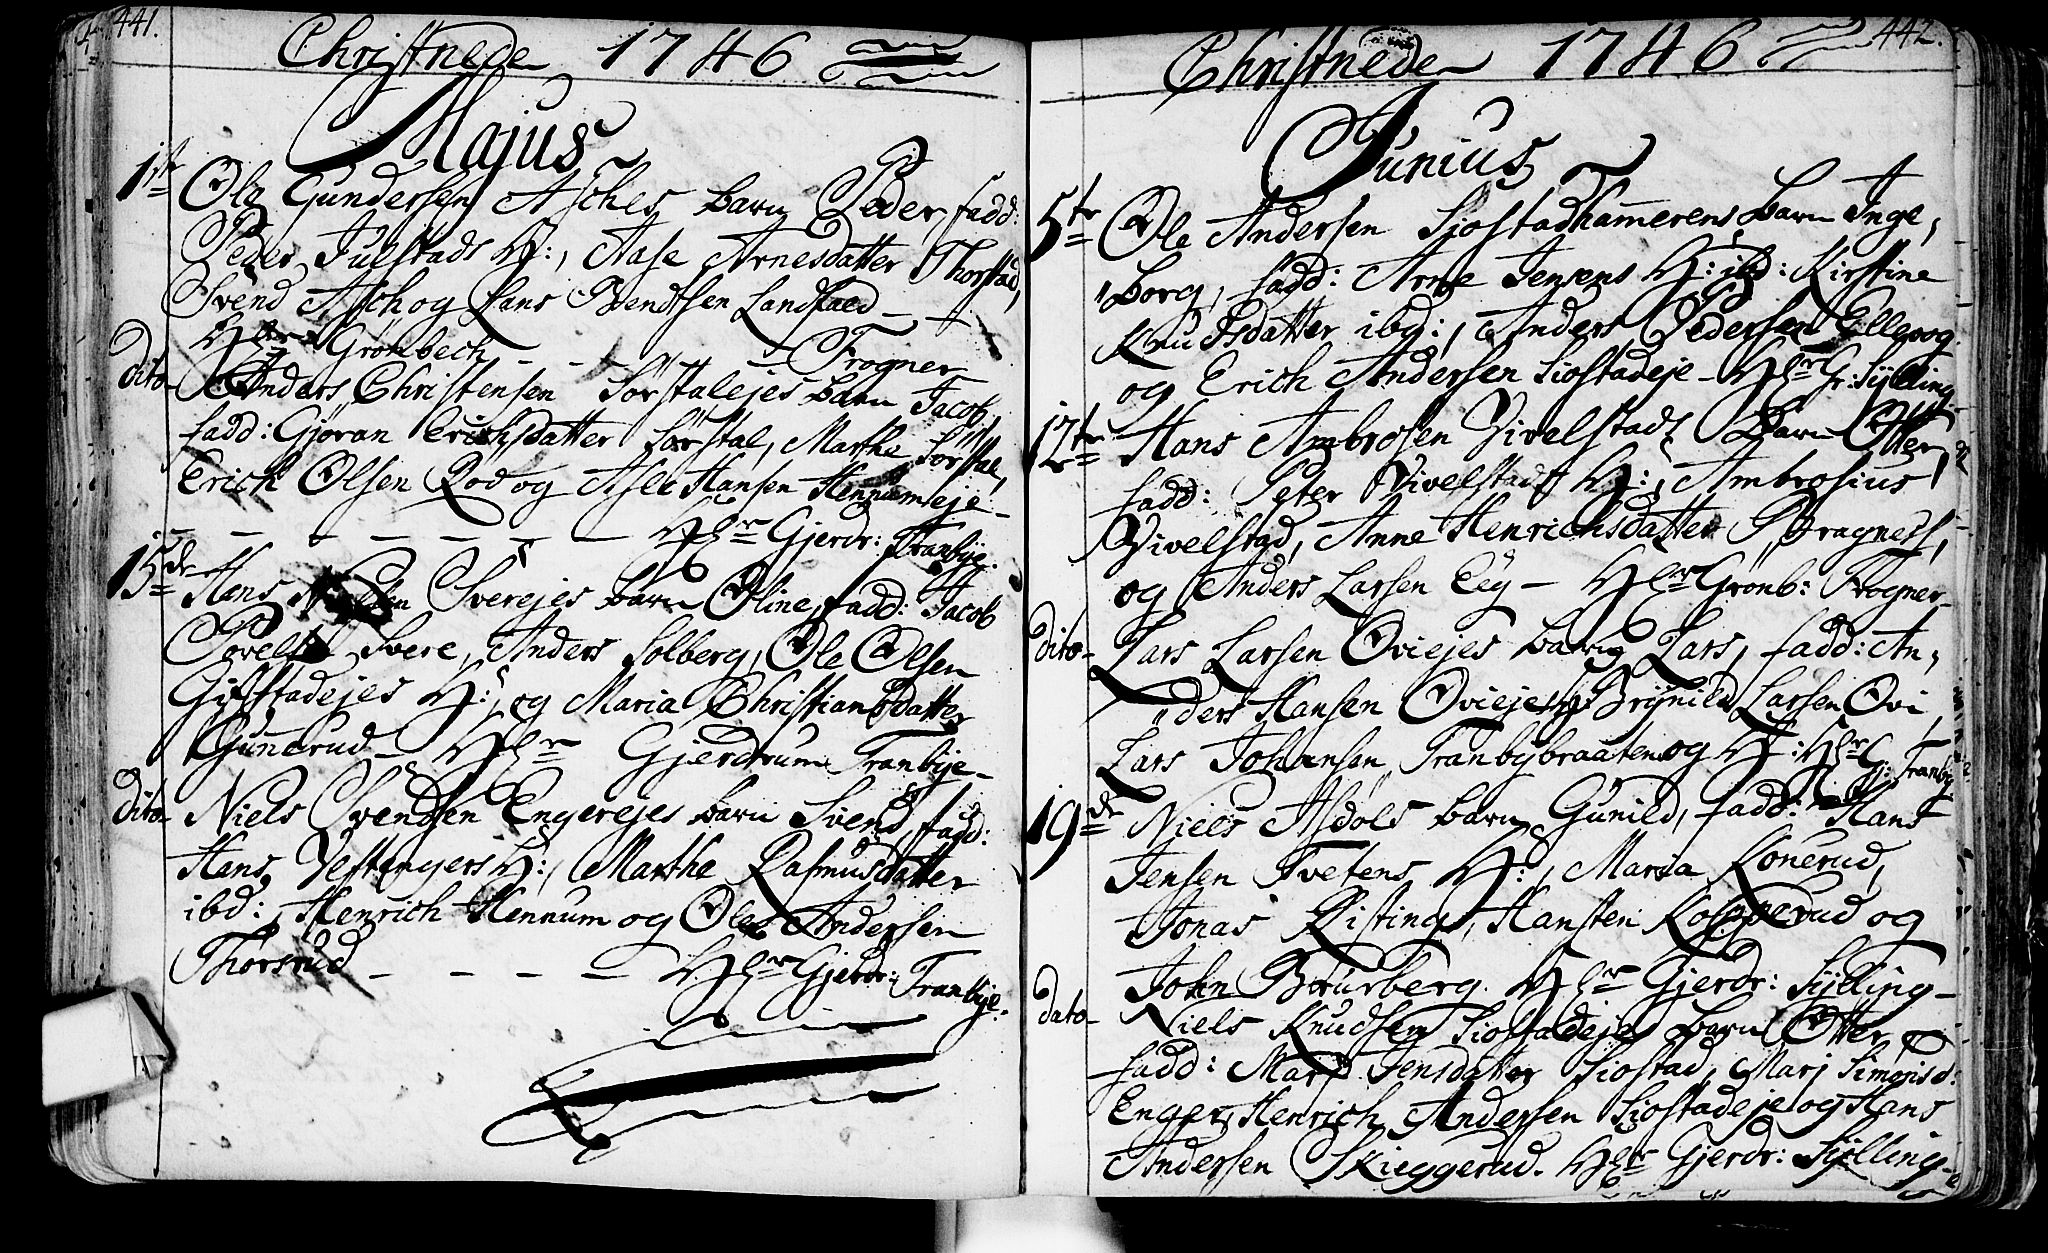 441.
Christnede 1746
Majus
1ste Ole Gundersen Asches barn Peder, fadd:
Peder Julstads H:, Aase Arnesdatter Thorstad,
Svend Asch og Hans Bendtsen Landfald
Hr Grönbech - - - - Frogner
dito- Anders Christensen Sørstalejes barn Jacob,
fadd: Gjøran Erichsdatter Sørstal, Marthe Sørstal,
Erich Olsen Rød og Asle Hansen Hennumeje-
- - - - - - Hr Gjerdr: Tranbye.
15de Hans Sverejes barn Oline, fadd: Jacob
Povelsen Svere, Anders Solberg, Ole Olsen
Gifstadejes H:, og Maria Christiansdatter
Gunerud - Hr Gjerdrum Tranbye-
dito- Niels Svendsen Engerejes barn Svend, fadd:
Hans Vestengers H:, Marthe Rasmusdatter
ibd:, Henrich Hennum og Ole Andersen
Thorsrud - - - - Hr Gjerdr: Tranbye.
442.
Christnede 1746
Junius
5te Ole Andersen Siostadhammerens barn Inge,
"borg, fadd: Arne Jensens H: ibd: Kirstine
Knudsdatter ibd:, Anders Pedersen Ellevog
og Erich Andersen Siostadeje - Hr Gr: Sylling
12te Hans Ambrosen Vivelstads barn Otter,
fadd: Peter Vivelstads H:, Ambrosius
Vivelstad, Anne Henrichsdatter Bragness,
og Anders Larsen Eey - Hr Gronb: Frogner-
dito- Lars Larsen Oviejes barn Lars, fadd: An,
"ders Hansen Ovieje, Brynild Larsen Ovi,
Lars Johansen Tranbybraaten og H: Hr G: Tranby
19de Niels Asdøls barn Gunild, fadd: Hans
Jensen Tvetens H:, Maria Konerud,
Jonas Kisting, Hansten Kopperud og
John Bourberg. Hr Gjerdr: Sylling-
dato- Niels Knudsen Siostadejes barn Otter
fadd: Mari Jensdatter Siostad, Marj Simonsd:
Enger, Henrich Andersen Siostadeje og Hans
Andersen Skieggerud. Hr Gjerdr: Sylling-